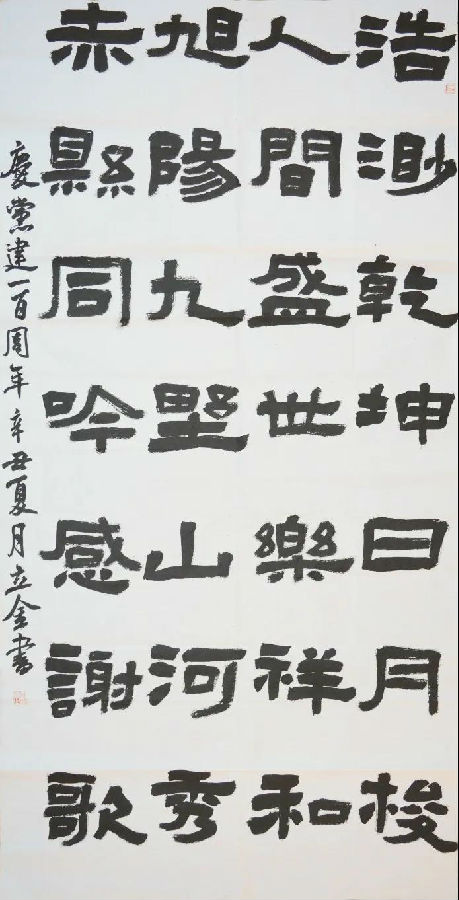 浩渺乾坤日月梭
人間盛世樂祥和
旭陽九野山河秀
赤縣同吟感謝歌
慶黨建一百周年辛丑夏月立金書